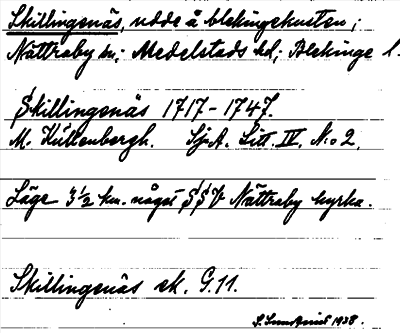 Skillingenäs, udde å blekingekusten,
Nättraby sn; Medelstads hd; Blekinge l.
Skillingenäs 1717-1747.
M. Kullenbergh. Sj.A. Litt. IV. N:o 2.
Läge 3½ km. något SSV Nättraby kyrka.
Skillingenäs ek. G.11.
1938.